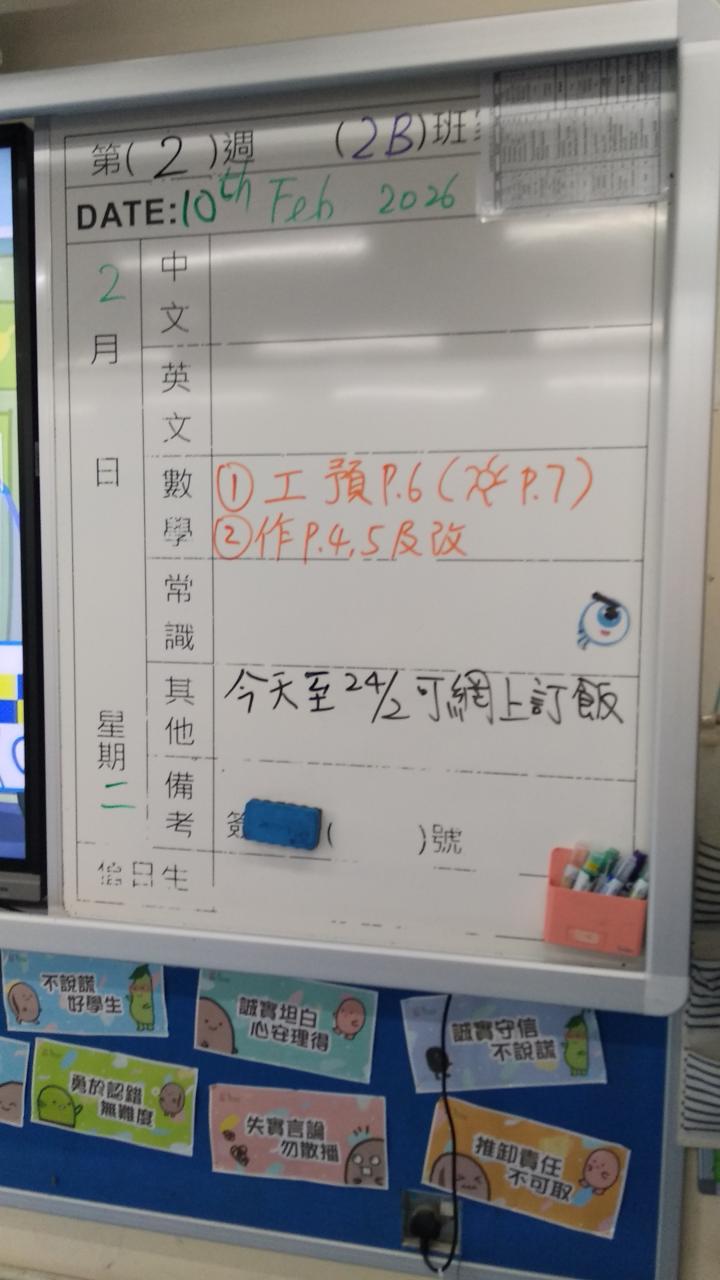 第(2)週 (2B)班
DATE:10th Feb 2026
2月 日 星期二
中文
英文
數學
①工 預P.6(必 P.7)
②作P.4,5及改
常識
其他
今天至24/2可網上訂飯
備考
簽 ( )號
值日生
不說謊
好學生
誠實坦白
心安理得
誠實守信
不說謊
勇於認錯
無難度
失實言論
勿散播
推卸責任
不可取